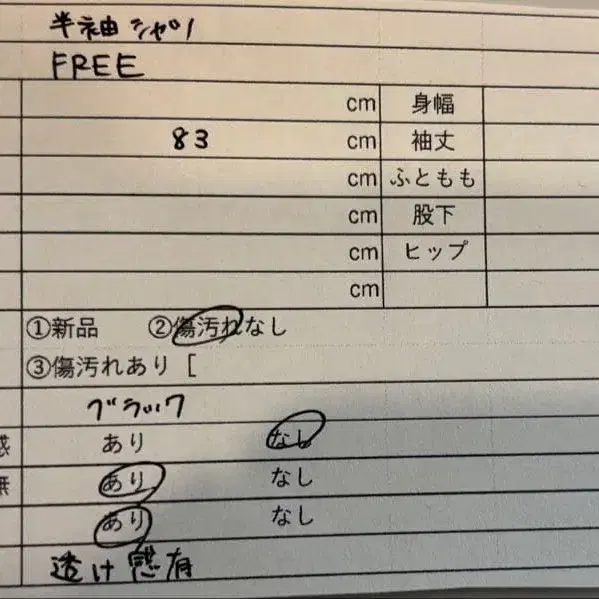 半袖シャツ
FREE
cm 身幅
83 cm 袖丈
cm ふともも
cm 股下
cm ヒップ
cm
①新品 ②傷汚れなし
③傷汚れあり [
ブラック
感 あり なし
無 あり なし
あり なし
透け感有